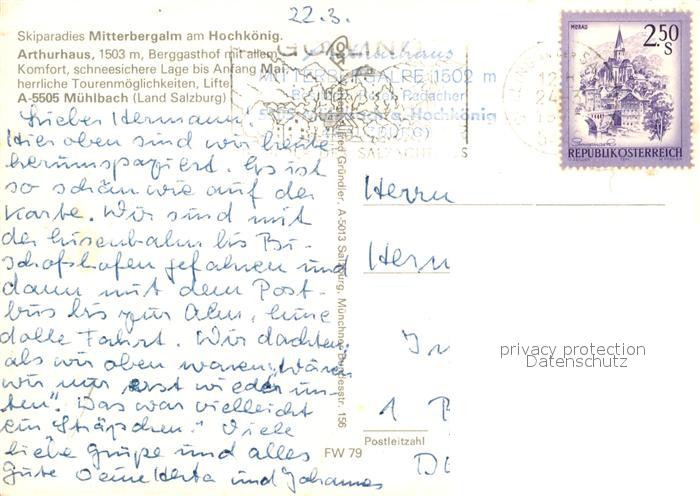 22.3.
Skiparadies Mitterbergalm am Hochkönig.
Arthurhaus, 1503 m, Berggasthof mit allem
Komfort, schneesichere Lage bis Anfang Mai,
herrliche Tourenmöglichkeiten, Lifte
A-5505 Mühlbach (Land Salzburg)
GOLLING
Arthurhaus
MITTERBERGALPE 1502 m
Radacher
Hochkönig
SALZACH
MURAU
2.50
S
REPUBLIK ÖSTERREICH
Lieber Hermann!
Hier oben sind wir heute
herumspaziert. Es ist
so schön wie auf der
Karte. Wir sind mit
der Eisenbahn bis Bi-
schofshofen gefahren und
dann mit dem Post-
bus bis zur Alm, eine
dolle Fahrt. Wir dachten
als wir oben waren, "Wären
wir nur erst wieder un-
ten". Das war vielleicht
ein Sträßchen. Viele
liebe Grüße und alles
Gute Deine Herta und Johannes
Gründler, A-5013 Salzburg, Münchner Bundesstr. 156
FW 79
Herrn
Hern
1
Postleitzahl
privacy protection
Datenschutz